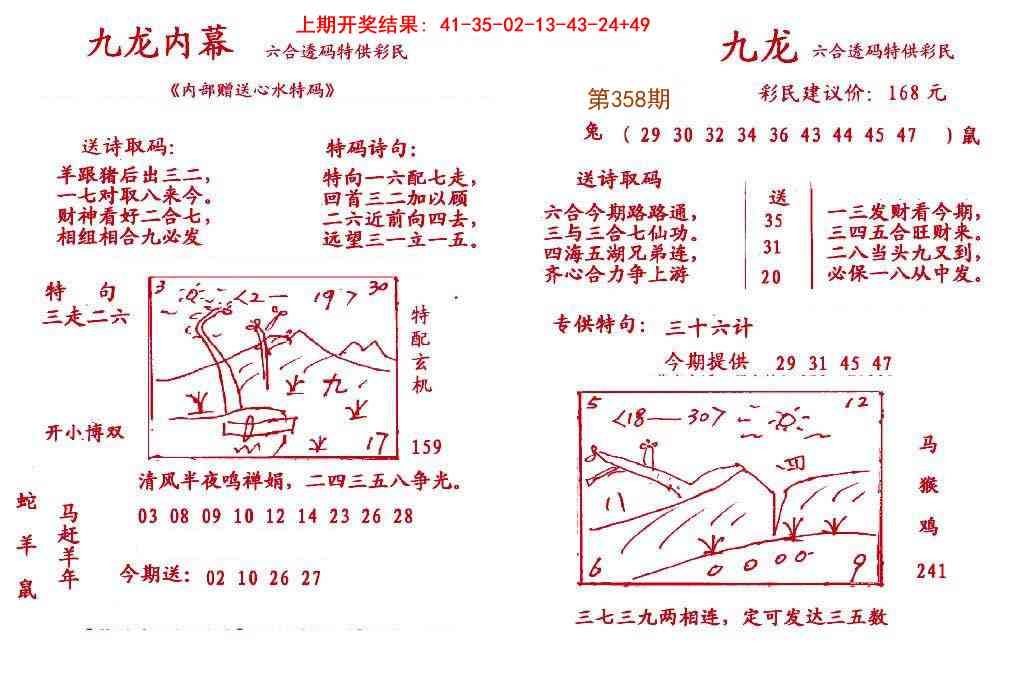 上期开奖结果: 41-35-02-13-43-24+49
九龙内幕 六合透码特供彩民
《内部赠送心水特码》
送诗取码:
羊跟猪后出三二,
一七对取八来今。
财神看好二合七,
相组相合九必发
特码诗句:
特向一六配七走,
回首三二加以顾
二六近前向四去,
远望三一立一五。
特 句
三走二六
开小博双
3 <2一 19> 30
九
17
特配玄机
159
清风半夜鸣禅娟, 二四三五八争光。
03 08 09 10 12 14 23 26 28
蛇羊鼠
马赶羊年
今期送: 02 10 26 27
九龙 六合透码特供彩民
第358期
彩民建议价: 168 元
兔 ( 29 30 32 34 36 43 44 45 47 ) 鼠
送诗取码
六合今期路路通,
三与三合七仙功。
四海五湖兄弟连,
齐心合力争上游
送
35
31
20
一三发财看今期,
三四五合旺财来。
二八当头九又到,
必保一八从中发。
专供特句: 三十六计
今期提供 29 31 45 47
5 <18一30> 12
八
6 9
马
猴
鸡
241
三七三九两相连, 定可发达三五数